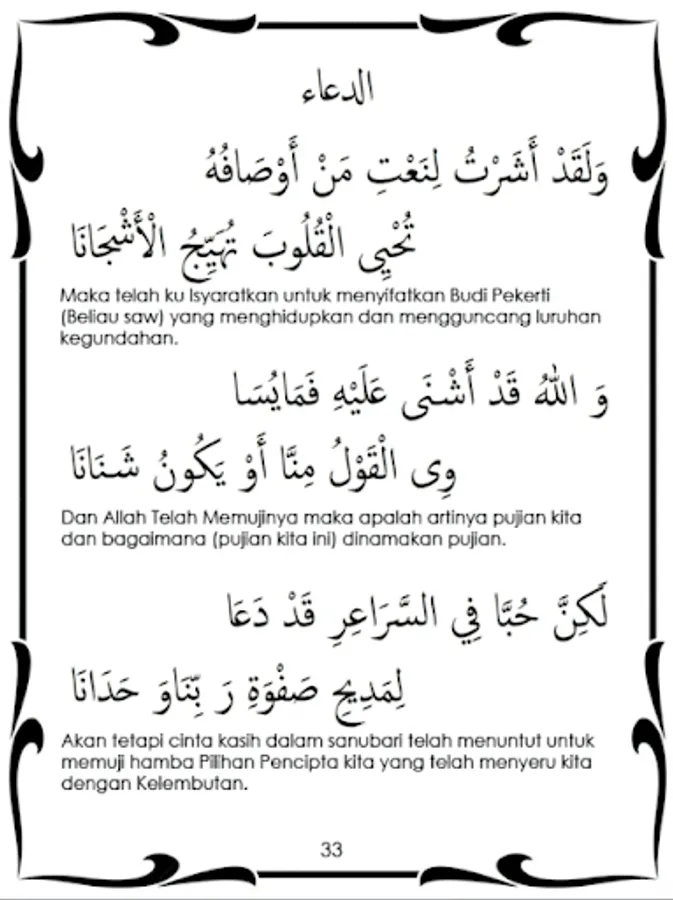 الدعاء
وَلَقَدْ أَشَرْتُ لِنَعْتِ مَنْ أَوْصَافُهُ
تُحْيِى الْقُلُوبَ تُهَيِّجُ الْأَشْجَانَا
Maka telah ku Isyaratkan untuk menyifatkan Budi Pekerti
(Beliau saw) yang menghidupkan dan mengguncang luruhan
kegundahan.
وَ اللهُ قَدْ أَشْنَى عَلَيْهِ فَمَايُسَا
وِى الْقَوْلُ مِنَّا أَوْ يَكُونُ شَنَانَا
Dan Allah Telah Memujinya maka apalah artinya pujian kita
dan bagaimana (pujian kita ini) dinamakan pujian.
لَكِنَّ حُبَّا فِي السَّرَاعِرِ قَدْ دَعَا
لِمَدِيحِ صَفْوَةِ رَ بِّنَاوَ حَدَانَا
Akan tetapi cinta kasih dalam sanubari telah menuntut untuk
memuji hamba Pilihan Pencipta kita yang telah menyeru kita
dengan Kelembutan.
33